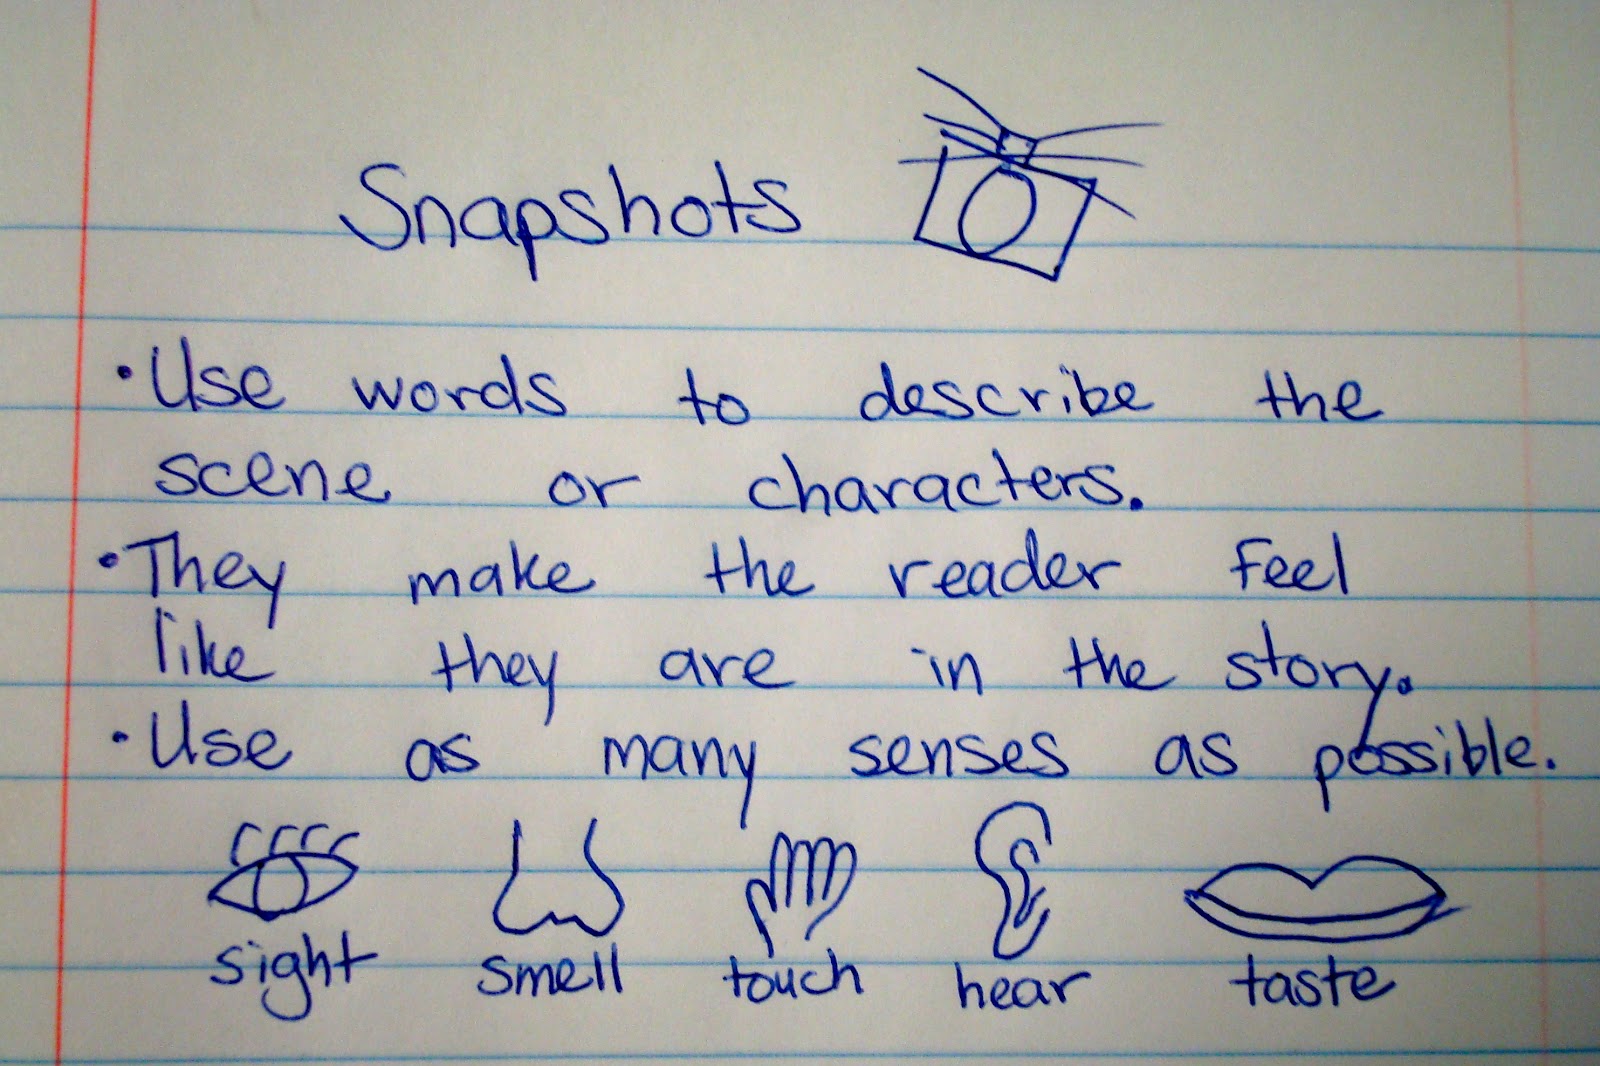 Snapshots
• Use words to describe the
scene or characters.
• They make the reader feel
like they are in the story.
• Use as many senses as possible.
sight smell touch hear taste